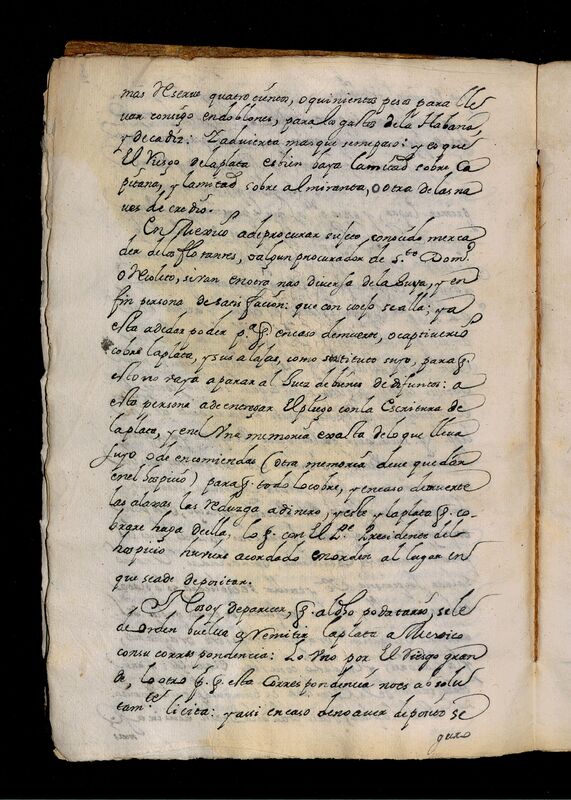 mas reserue quatrocientos, o quinientos pesos para lle
uar consigo en doblones, para los gastos de la Habana,
y de cadiz: I aduierta mas que semi peso: y es que
El riesgo de la plata esti en baya la mitad sobre ca
pitana, y la mitad sobre almiranta, o otra de las na
ues de credito.
En Mexico a de procurar sujeto conosido merca
der de los flotantes, o algun procurador de S.to Dom.º
o Nicolas, si van en otra nao diuersa de la suya, y en
fin persona de satisfacion: que con todo se alla: y a
esta a de dar poder p.ª q. en caso de muerte, o captiuerio
cobre la plata, y sus alajas, como sustituto suyo, para q.
esto no vaya a parar al Juez de bienes de difuntos: a
esta persona a de entregar El pliego con la Escritura de
la plata, y en el Vna memoria exacta de lo que lleua
suyo o de encomiendas (otra memoria deue quedar
en el hospicio) para q. todo lo cobre, y en caso de muerte
las alajas, las reduzga a dinero, y este y la plata q. co-
brare haga de ella, lo q. con El P.e Presidente del
hospicio huuiere acordado en orden al lugar en
que se a de depositar.
Y No soy de parecer, q. a el tal podatario, se le
de orden buelua a remitir la plata a Mexico
con su correspondencia: Lo Vno por El riesgo gran
de, lo otro p. q. esta correspondencia no es absolu
tam.te licita: y assi en caso de no auer deposito se
guro